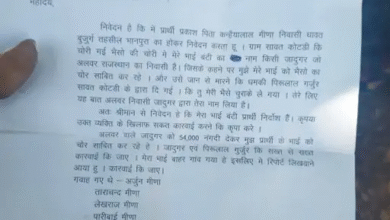 महोदय,
निवेदन है कि मे प्रार्थी प्रकाश पिता कन्हैयालाल मीणा निवासी धावत
बुजुर्ग तहसील भानपुरा का होकर निवेदन करता हू । ग्राम सावत कोटडी कि
चोरी गई भैसो की चोरी मे मेरे भाई बंटी का नाम किसी जादुगर जो
अलवर राजस्थान का निवासी है। जिसके कहने पर मुझे मेरे भाई को भैसो का
चोर साबित कर रहे है । ओर उसे जान से मारने कि धमकी पिरूलाल गुर्जर
सावत कोटडी के द्वारा दि गई । कि तु मेरी भैसे चुराके ले गया । तेरे लिए
यह बात अलवर निवासी जादुगर द्वारा तेरा नाम लिया है।
अतः श्रीमान से निवेदन है कि मेरा भाई बंटी प्रार्थी निर्दोष है। कृपया
उक्त व्यक्ति के खिलाफ सकत कारवाई करने कि कृपा करे ।
अलवर वाले जादुगर को 54,000 नगदी देकर मुझ प्रार्थी के भाई को
चोर साबित कर रहे है । जादुगर एवं पिरूलाल गुर्जर कि सख्त से
कारवाई कि जाए । मेरा भाई बाहर गाव गया है इसलिए मे रिपोर्ट लिखवाने
आया हू । कारवाई किजाए ।
गवाह गए थे - अर्जुन मीणा
ताराचन्द मीणा
लेखराज मीणा
पारीबाई मीणा